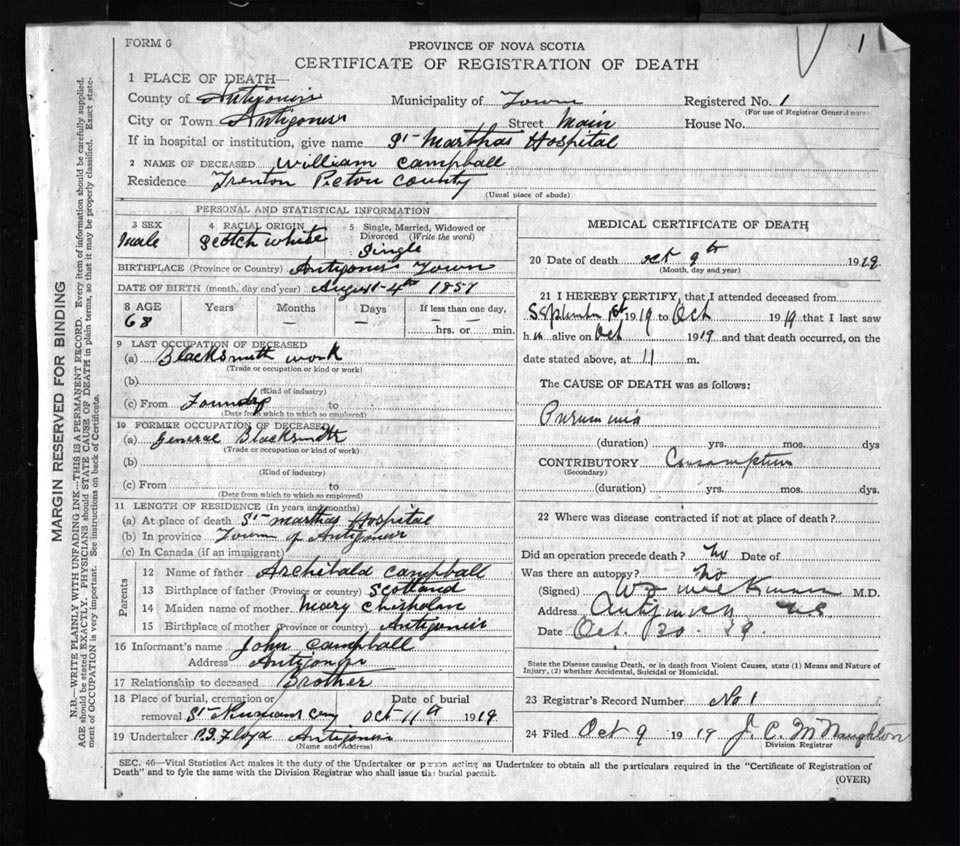 FORM 6
1
PROVINCE OF NOVA SCOTIA
CERTIFICATE OF REGISTRATION OF DEATH
1 PLACE OF DEATH—
County of Antigonis Municipality of Town Registered No. 1
(For use of Registrar General only)
City or Town Antigonis Street Main House No.
If in hospital or institution, give name St Marthas Hospital
2 NAME OF DECEASED William Campball
Residence Trenton Pictou County
(Usual place of abode)
PERSONAL AND STATISTICAL INFORMATION
3 SEX 4 RACIAL ORIGIN 5 Single, Married, Widowed or Divorced (Write the word)
Male Scotch white Single
BIRTHPLACE (Province or Country) Antigonis Town
DATE OF BIRTH (month, day and year) August 4th
8 AGE Years Months Days If less than one day,
68 — — — hrs. or min.
9 LAST OCCUPATION OF DECEASED
(a) Blacksmith work
(Trade or occupation or kind or work)
(b)
(Kind of industry)
(c) From to
(Date from which to which so employed)
10 FORMER OCCUPATION OF DECEASED
(a) General Blacksmith
(Trade or occupation or kind of work)
(b)
(Kind of industry)
(c) From to
(Date from which to which so employed)
11 LENGTH OF RESIDENCE (In years and months)
(a) At place of death St marthas Hospital
(b) In province Town of Antigonis
(c) In Canada (if an immigrant)
Parents
12 Name of father Archibald Campball
13 Birthplace of father (Province or country) Scotland
14 Maiden name of mother Mary Chisholm
15 Birthplace of mother (Province or country) Antigonis
16 Informant's name John Campball
Address
17 Relationship to deceased Brother
18 Place of burial, cremation or Date of burial
removal St Oct 11th 1919
19 Undertaker Floyd Antigonis
(Name and Address)
MEDICAL CERTIFICATE OF DEATH
20 Date of death oct 9th 1919.
(Month, day and year)
21 I HEREBY CERTIFY, that I attended deceased from
September 1st 1919 to Oct 1919 that I last saw
h im alive on Oct 1919 and that death occurred, on the
date stated above, at 11 m.
The CAUSE OF DEATH was as follows:
(duration) yrs. mos. dys
CONTRIBUTORY Consumption
(Secondary)
(duration) yrs. mos. dys.
22 Where was disease contracted if not at place of death?
Did an operation precede death? no Date of
Was there an autopsy? no
(Signed) M.D.
Address
Date Oct.
State the Disease causing Death, or in death from Violent Causes, state (1) Means and Nature of
Injury, (2) whether Accidental, Suicidal or Homicidal.
23 Registrar's Record Number No 1
24 Filed Oct 9 1919 J. C. McNaughton
Division Registrar
SEC. 46—Vital Statistics Act makes it the duty of the Undertaker or person acting as Undertaker to obtain all the particulars required in the "Certificate of Registration of
Death" and to fyle the same with the Division Registrar who shall issue the burial permit.
(OVER)
MARGIN RESERVED FOR BINDING
N.B.—WRITE PLAINLY WITH UNFADING INK—THIS IS A PERMANENT RECORD. Every item of information should be carefully supplied.
AGE should be stated EXACTLY. PHYSICIANS should STATE CAUSE OF DEATH in plain terms, so that it may be properly classified. Exact state-
ment of OCCUPATION is very important. See instructions on back of Certificate.